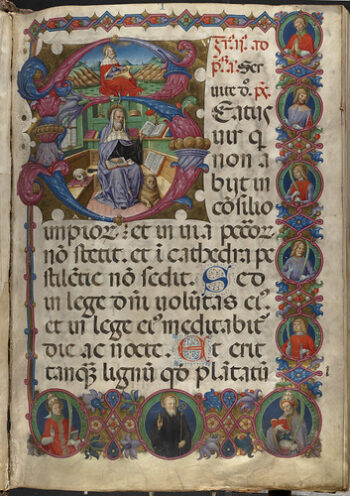 ad
p̃ma. Ser
uite d̃o. p̃s.
Beatus
uir q
non a
bijt in
cõsilio
impioꝝ: et in uia pec̃cor̃
nõ stetit. et ĩ cathedra pe
stilẽtie nõ sedit. Sed
in lege dñi uolũtas eiꝰ
et in lege eiꝰ meditabit̃
die ac nocte. Et erit
tanqʒ lignũ qď plãtatũ